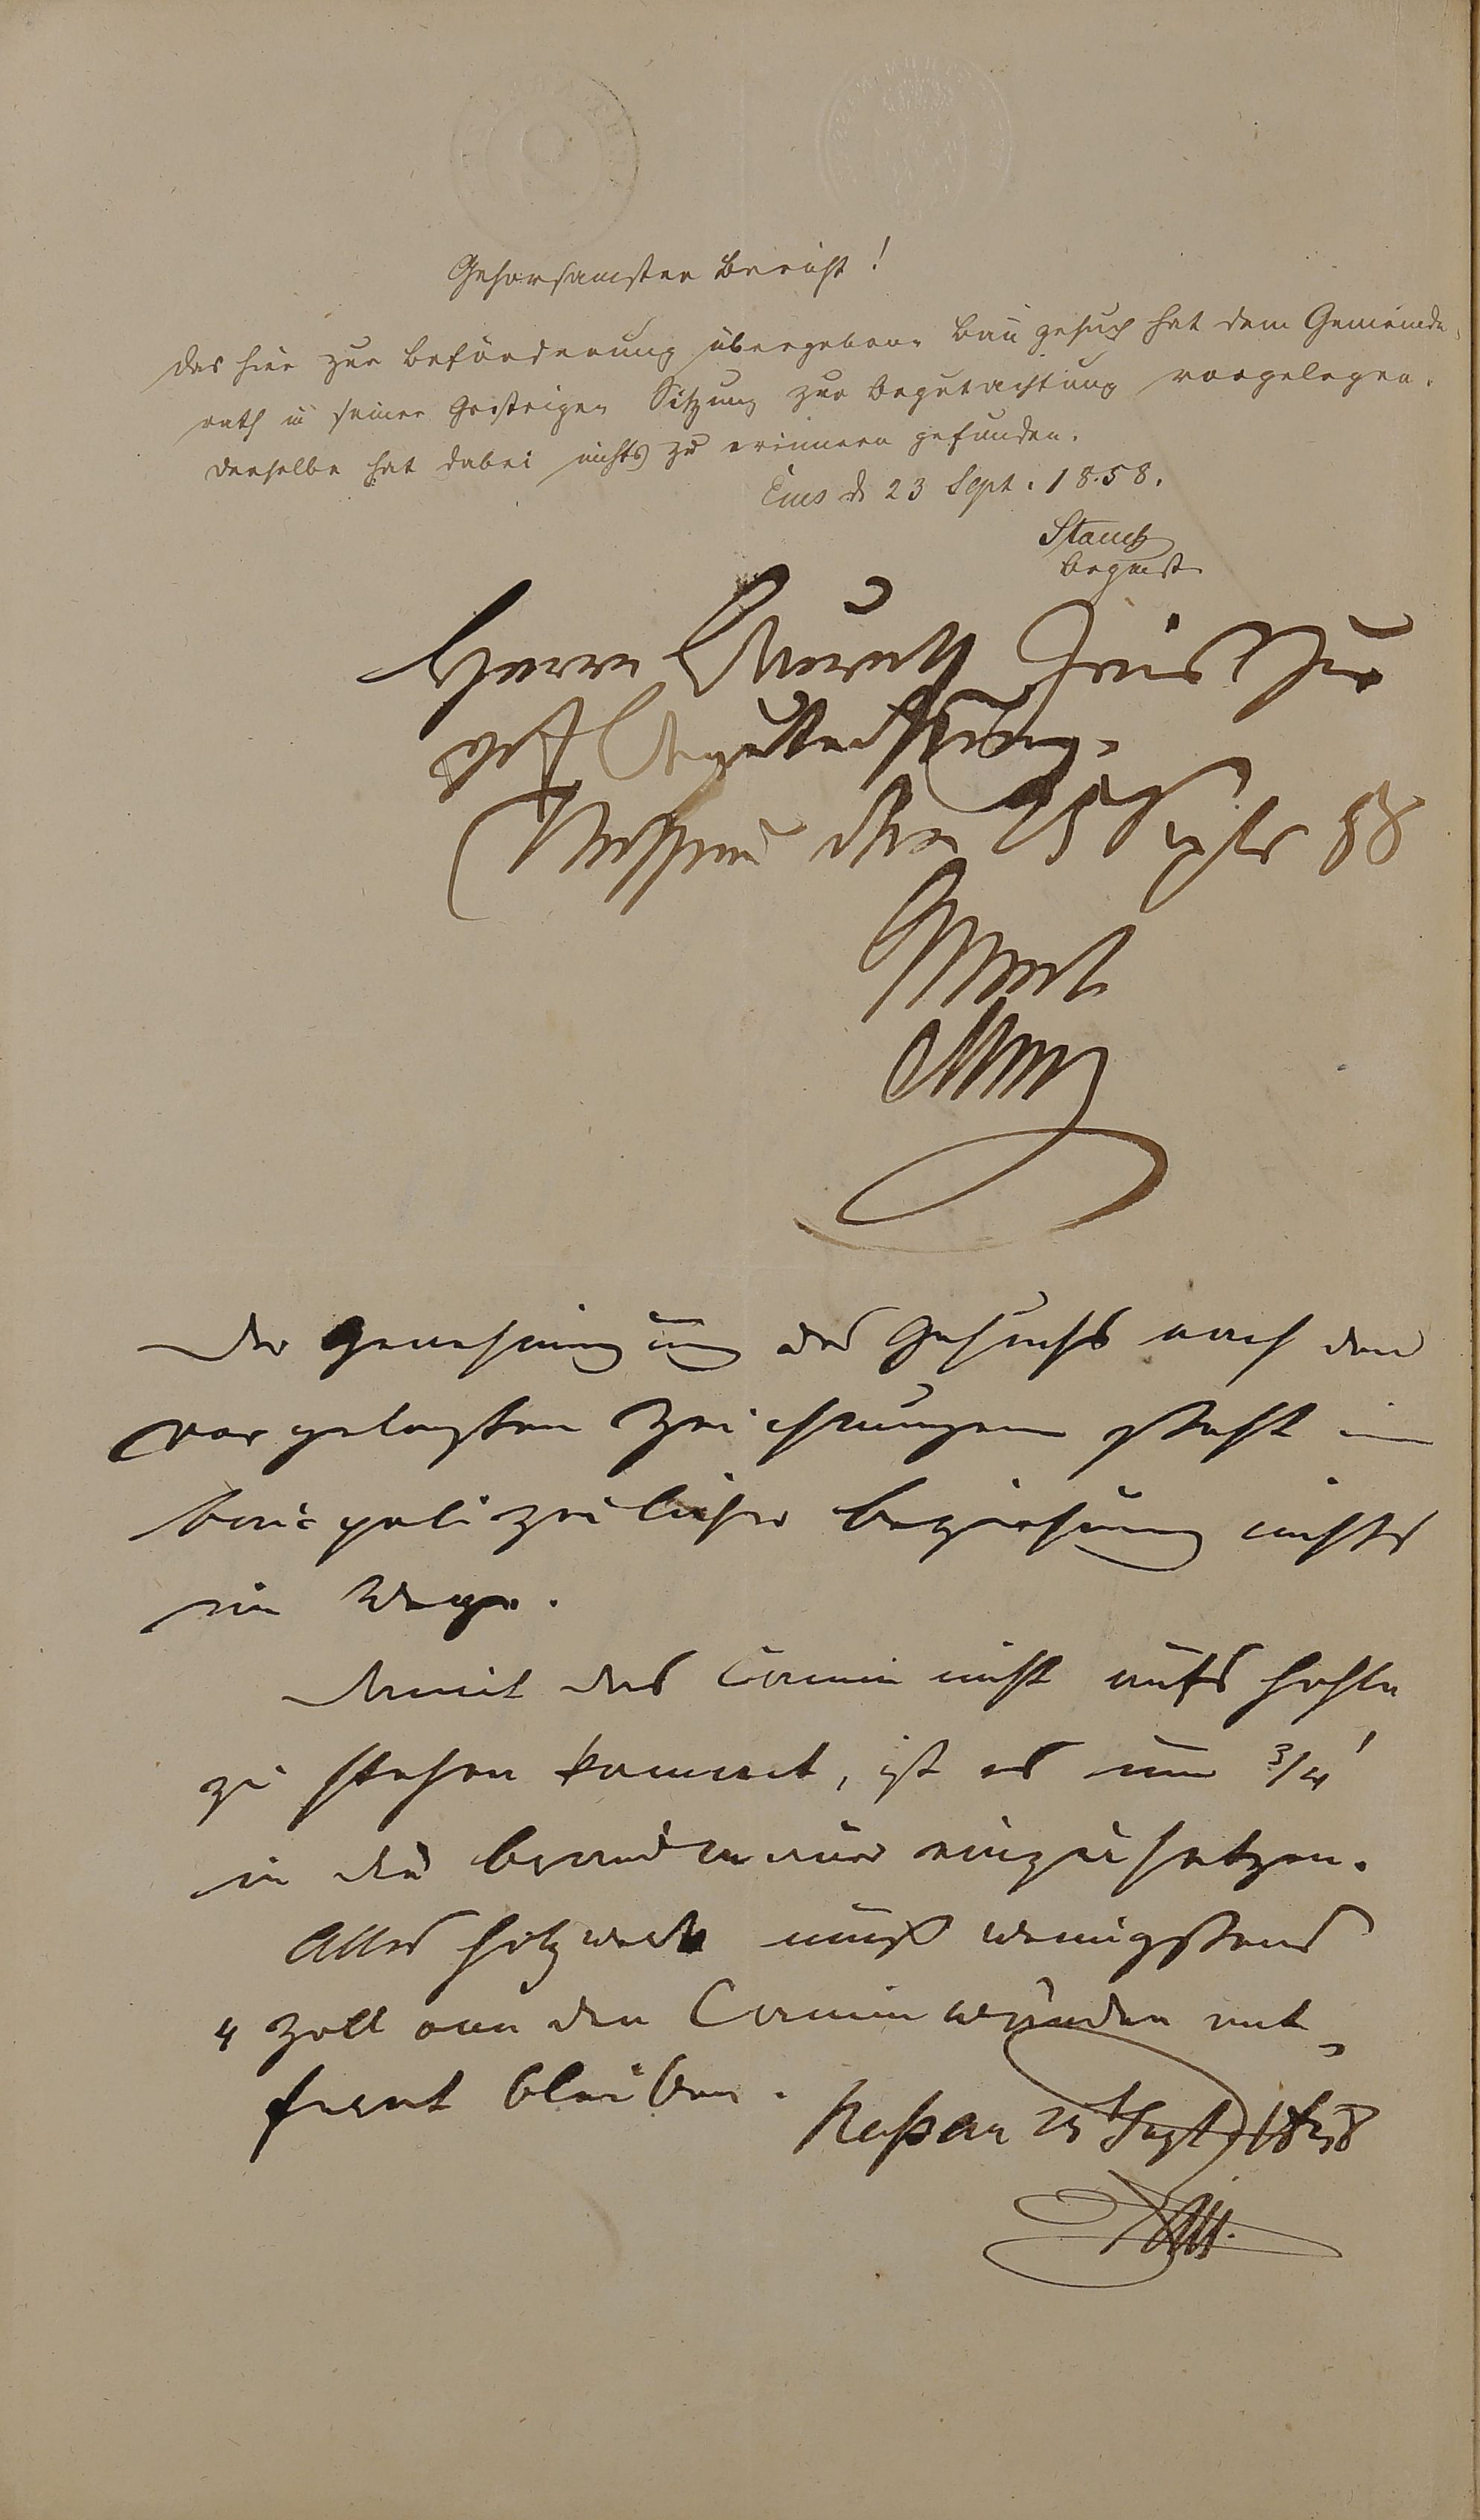 Gehorsamster Bericht!
Das hier zur Beförderung übergebene Baugesuch hat dem Gemeinde-
rath in seiner gestrigen Sitzung zur Begutachtung vorgelegen.
Derselbe hat dabei nichts zu erinnern gefunden.
Ems d 23 Sept. 1858.
Bgmst
Herrn zur
gef Begutachtung.
Nassau den 25 Septr 58
Der Genehmigung des Gesuchs nach den
vorgelegten Zeichnungen steht in
baupolizeilicher Beziehung nichts
im Wege.
Damit das Camin nicht aufs Hohle
zu stehen kommt, ist es um 3/4'
in die Brandmauer einzusetzen.
Alles Holzwerk muß wenigstens
4 Zoll von den Caminwänden ent-
fernt bleiben.
Naßau 25 Sept 1858